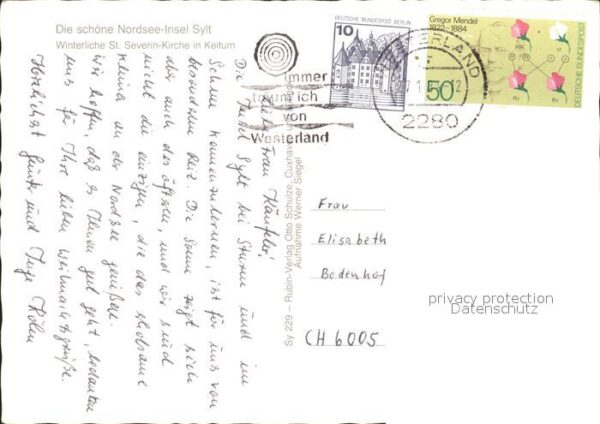 Die schöne Nordsee-Insel Sylt
Winterliche St. Severin-Kirche in Keitum
Liebe Frau Käufeler,
Die Insel Sylt bei Sturm und im
Schnee kennenzulernen, ist für uns von
besonderem Reiz. Die Sonne zeigt sich
aber auch des öfteren, und wir sind
nicht die einzigen, die das erholsame
Klima an der Nordsee genießen.
Wir hoffen, daß es Ihnen gut geht, bedanken
uns für Ihre lieben Weihnachtsgrüße.
Herzlichst Ihre und Inge Köln
Sy 229 – Rubin-Verlag Otto Schulze, Cuxhaven
Aufnahme Werner Siegel
Immer
träum' ich
von
Westerland
DEUTSCHE BUNDESPOST BERLIN
10
WESTERLAND
2280
Gregor Mendel
1822-1884
50
RR
rr
Rr
Rr
DEUTSCHE BUNDESPOST
Frau
Elisabeth
Bodenhof
CH 6005
privacy protection
Datenschutz